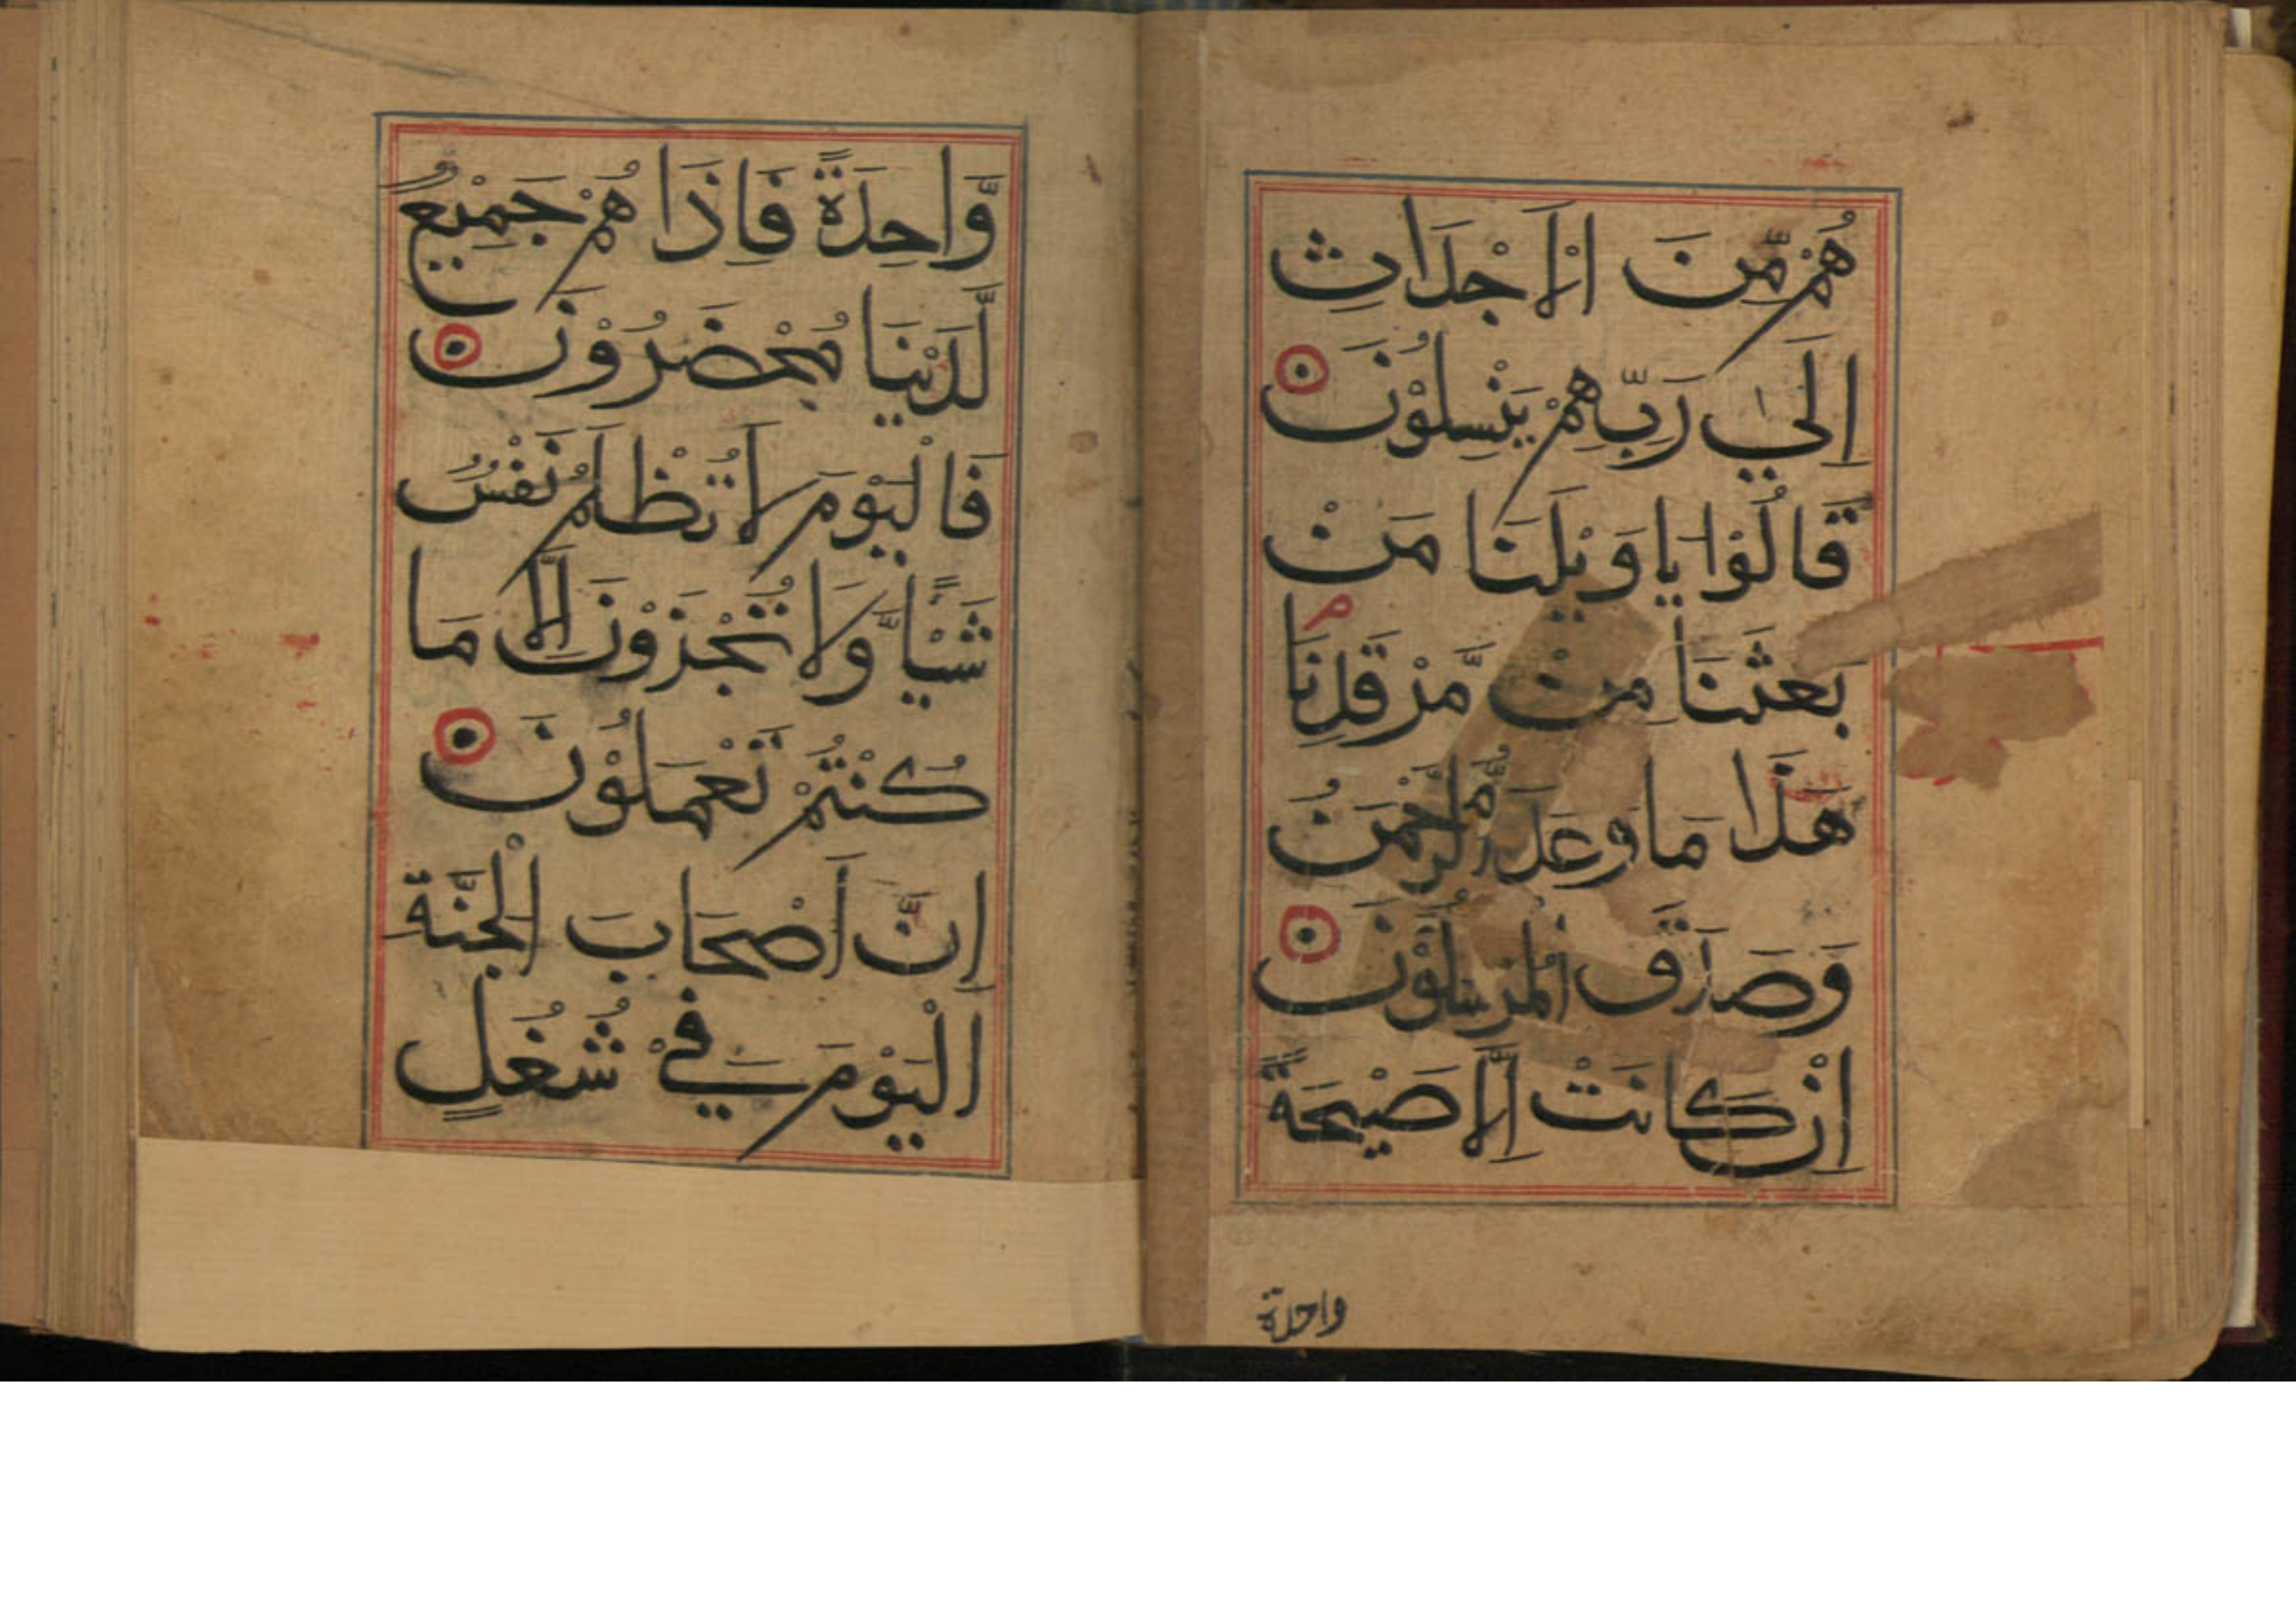 هُمْ مِّنَ الْاَجْدَاثِ
اِلٰي رَبِّهِمْ يَنْسِلُوْنَ
قَالُوْا يَا وَيْلَنَا مَنْ
بَعَثَنَا مِنْ مَّرْقَدِنَا م
هَذَا مَا وَعَدَ الرَّحْمَنُ
وَصَدَقَ الْمُرْسَلُوْنَ
اِنْ كَانَتْ اِلَّا صَيْحَةً
واحدة
وَّاحِدَةً فَاِذَا هُمْ جَمِيْعٌ
لَّدَيْنَا مُحْضَرُوْنَ
فَالْيَوْمَ لَا تُظْلَمُ نَفْسٌ
شَيْـًٔا وَّلَا تُجْزَوْنَ اِلَّا مَا
كُنْتُمْ تَعْمَلُوْنَ
اِنَّ اَصْحَابَ الْجَنَّةِ
الْيَوْمَ فِيْ شُغُلٍ